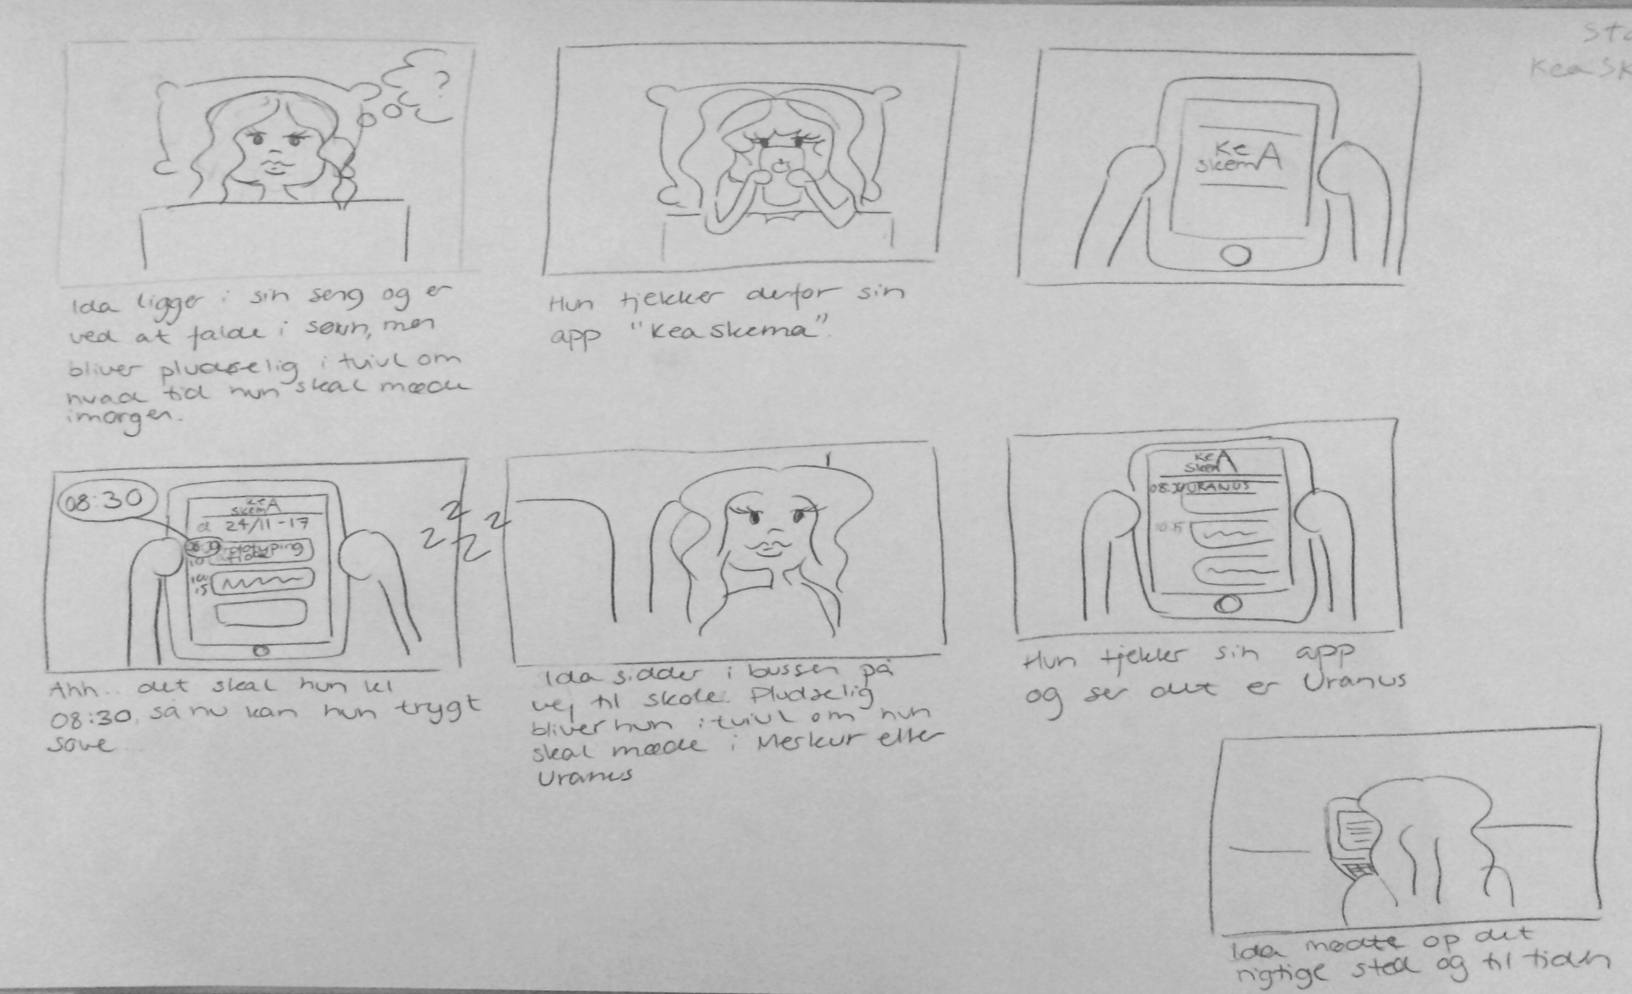 Sto
Kea Sk
?
Ida ligger i sin seng og er
ved at falde i søvn, men
bliver pludselig i tvivl om
hvad tid hun skal møde
imorgen.
Hun tjekker derfor sin
app "Kea Skema".
KeA
skemA
08:30
KeA
skemA
24/11-17
08:30
Prototyping
10
10
15
z z z z
Ahh.. det skal hun kl
08:30, så nu kan hun trygt
sove
Ida sidder i bussen på
vej til skole. Pludselig
bliver hun i tvivl om hun
skal møde i Merkur eller
Uranus
KeA
skemA
08:30 URANUS
10:15
Hun tjekker sin app
og ser det er Uranus
Ida mødte op det
rigtige sted og til tiden